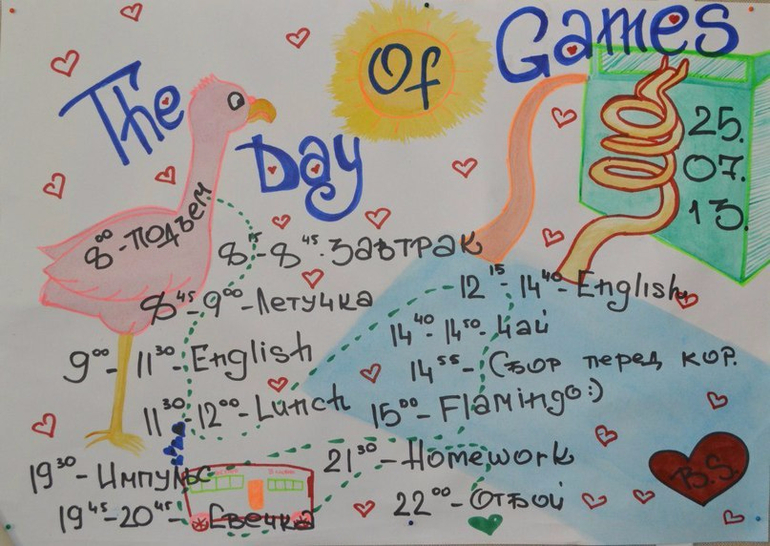 The Day Of Games
25.
07.
13.
8⁰⁰-подъем
8¹⁵-8⁴⁵-завтрак
8⁴⁵-9⁰⁰-Летучка
9⁰⁰-11³⁰-English
11³⁰-12⁰⁰-Lunch
12¹⁵-14⁴⁰-English
14⁴⁰-14⁵⁰-Чай
14⁵⁵-Сбор перед кор.
15⁰⁰-Flamingo:)
19³⁰-Импульс
19⁴⁵-20⁴⁵-Свечка
21³⁰-Homework
22⁰⁰-Отбой
B.S.